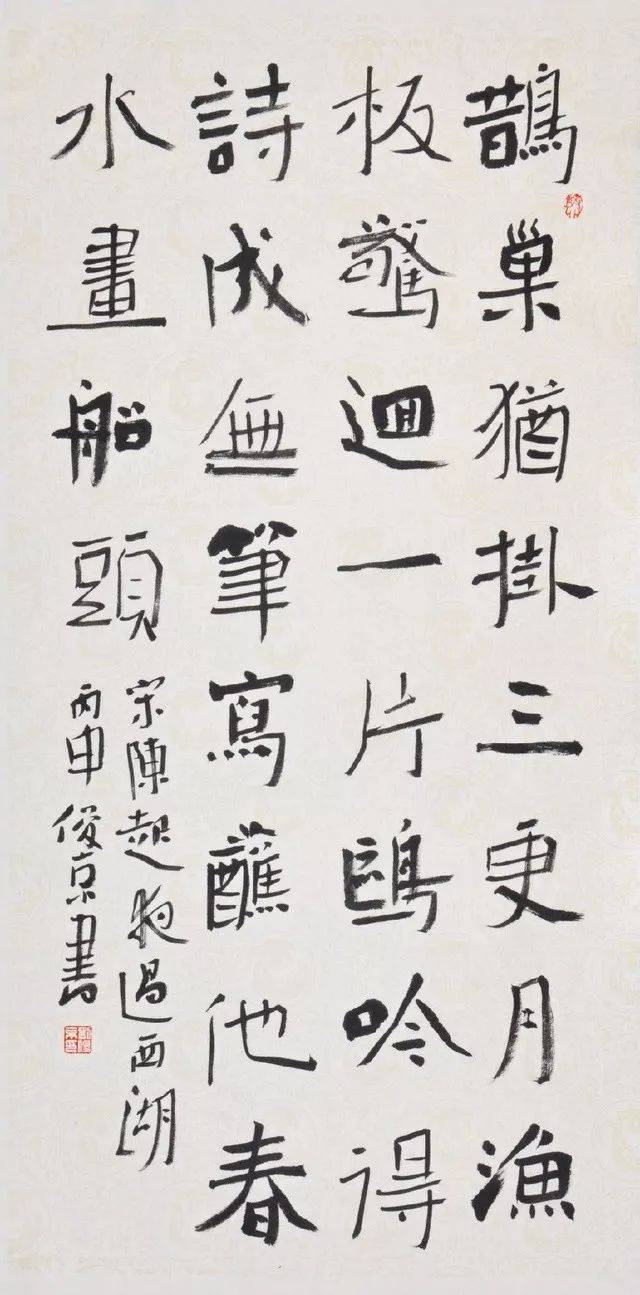 鵲巢猶掛三更月漁
板驚迴一片鷗吟得
詩成無筆寫蘸他春
水畫船頭
宋陳起夜過西湖
丙申俊京書